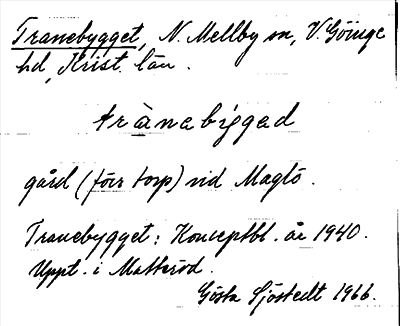 Tranebygget, N. Mellby sn, V. Göinge
hd, Krist. län.
trànebỳgged
gård (förr torp) vid Maglö.
Tranebygget: Konceptbl. år 1940.
Uppt. i Matteröd.
Gösta Sjöstedt 1966.